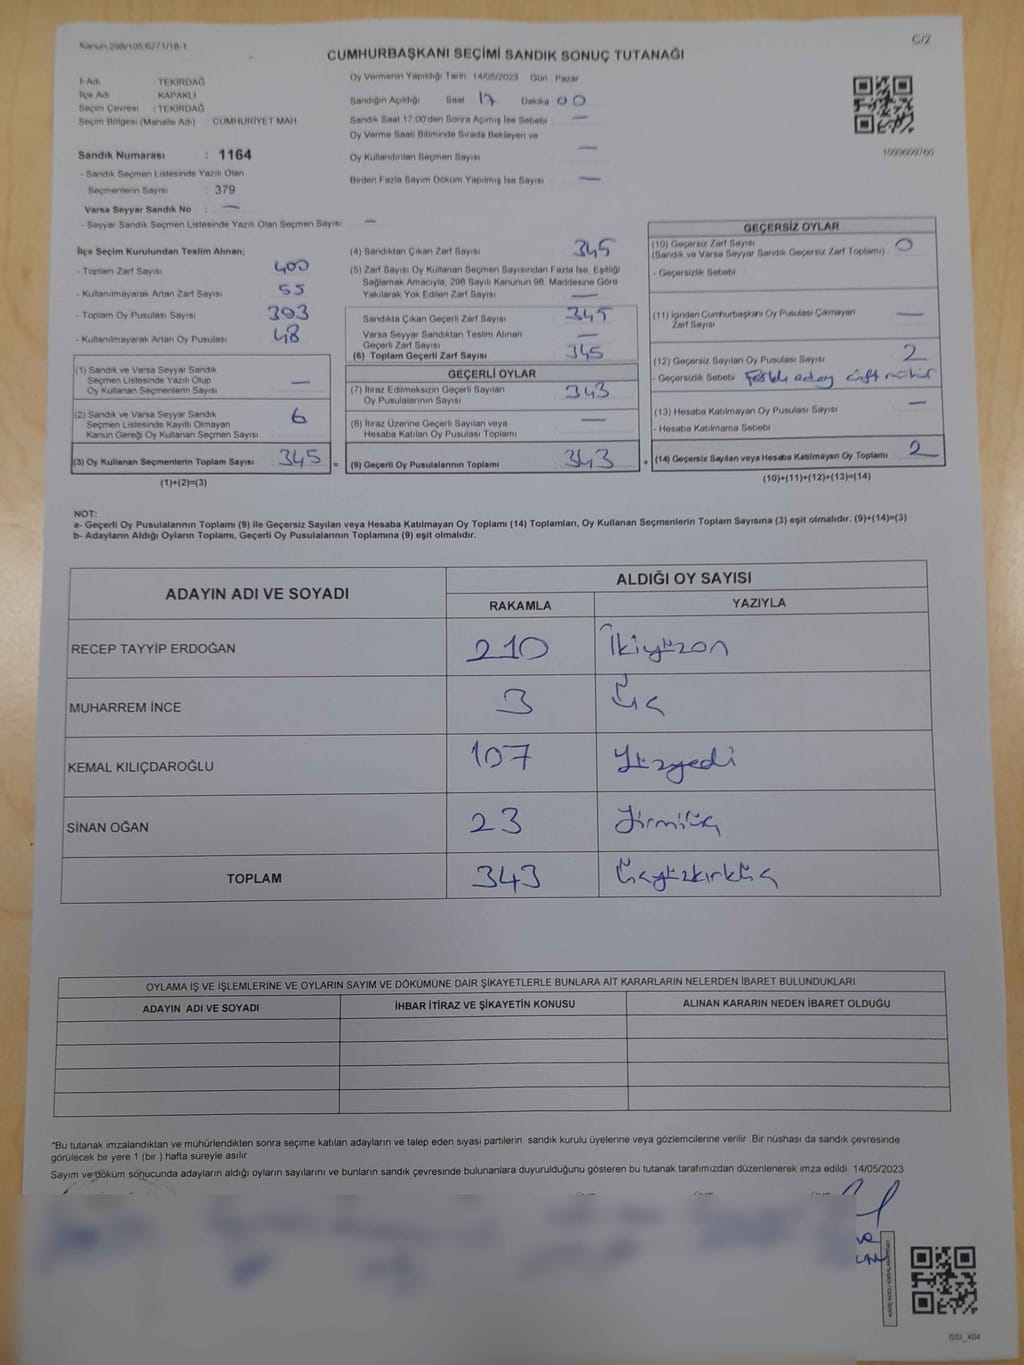 Kanun:298/105;6271/18-1
C/2
CUMHURBAŞKANI SEÇİMİ SANDIK SONUÇ TUTANAĞI
İl Adı : TEKİRDAĞ
İlçe Adı : KAPAKLI
Seçim Çevresi : TEKİRDAĞ
Seçim Bölgesi (Mahalle Adı) : CUMHURİYET MAH.
Sandık Numarası : 1164
- Sandık Seçmen Listesinde Yazılı Olan
Seçmenlerin Sayısı : 379
Varsa Seyyar Sandık No : —
- Seyyar Sandık Seçmen Listesinde Yazılı Olan Seçmen Sayısı: —
Oy Vermenin Yapıldığı Tarih 14/05/2023 Gün : Pazar
Sandığın Açıldığı Saat 17 Dakika 00
Sandık Saat 17:00'den Sonra Açılmış İse Sebebi —
Oy Verme Saati Bitiminde Sırada Bekleyen ve
Oy Kullandırılan Seçmen Sayısı —
Birden Fazla Sayım Döküm Yapılmış İse Sayısı —
1093609760
İlçe Seçim Kurulundan Teslim Alınan;
- Toplam Zarf Sayısı 400
- Kullanılmayarak Artan Zarf Sayısı 55
- Toplam Oy Pusulası Sayısı 393
- Kullanılmayarak Artan Oy Pusulası 48
(1) Sandık ve Varsa Seyyar Sandık
Seçmen Listesinde Yazılı Olup
Oy Kullanan Seçmenlerin Sayısı —
(2) Sandık ve Varsa Seyyar Sandık
Seçmen Listesinde Kayıtlı Olmayan
Kanun Gereği Oy Kullanan Seçmen Sayısı 6
(3) Oy Kullanan Seçmenlerin Toplam Sayısı 345
(1)+(2)=(3)
(4) Sandıktan Çıkan Zarf Sayısı 345
(5) Zarf Sayısı Oy Kullanan Seçmen Sayısından Fazla İse, Eşitliği
Sağlamak Amacıyla, 298 Sayılı Kanunun 98. Maddesine Göre
Yakılarak Yok Edilen Zarf Sayısı —
Sandıkta Çıkan Geçerli Zarf Sayısı 345
Varsa Seyyar Sandıktan Teslim Alınan
Geçerli Zarf Sayısı —
(6) Toplam Geçerli Zarf Sayısı 345
GEÇERLİ OYLAR
(7) İtiraz Edilmeksizin Geçerli Sayılan
Oy Pusulalarının Sayısı 343
(8) İtiraz Üzerine Geçerli Sayılan veya
Hesaba Katılan Oy Pusulası Toplamı —
= (9) Geçerli Oy Pusulalarının Toplamı 343
GEÇERSİZ OYLAR
(10) Geçersiz Zarf Sayısı 0
(Sandık ve Varsa Seyyar Sandık Geçersiz Zarf Toplamı)
- Geçersizlik Sebebi
(11) İçinden Cumhurbaşkanı Oy Pusulası Çıkmayan
Zarf Sayısı —
(12) Geçersiz Sayılan Oy Pusulası Sayısı 2
- Geçersizlik Sebebi Farklı aday çift mühür
(13) Hesaba Katılmayan Oy Pusulası Sayısı —
- Hesaba Katılmama Sebebi
+ (14) Geçersiz Sayılan veya Hesaba Katılmayan Oy Toplamı 2
(10)+(11)+(12)+(13)=(14)
NOT:
a- Geçerli Oy Pusulalarının Toplamı (9) ile Geçersiz Sayılan veya Hesaba Katılmayan Oy Toplamı (14) Toplamları, Oy Kullanan Seçmenlerin Toplam Sayısına (3) eşit olmalıdır. (9)+(14)=(3)
b- Adayların Aldığı Oyların Toplamı, Geçerli Oy Pusulalarının Toplamına (9) eşit olmalıdır.
ADAYIN ADI VE SOYADI
ALDIĞI OY SAYISI
RAKAMLA YAZIYLA
RECEP TAYYİP ERDOĞAN 210 İkiyüzon
MUHARREM İNCE 3 Üç
KEMAL KILIÇDAROĞLU 107 Yüzyedi
SİNAN OĞAN 23 Yirmiüç
TOPLAM 343 Üçyüzkırküç
OYLAMA İŞ VE İŞLEMLERİNE VE OYLARIN SAYIM VE DÖKÜMÜNE DAİR ŞİKAYETLERLE BUNLARA AİT KARARLARIN NELERDEN İBARET BULUNDUKLARI
ADAYIN ADI VE SOYADI İHBAR İTİRAZ VE ŞİKAYETİN KONUSU ALINAN KARARIN NEDEN İBARET OLDUĞU
"Bu tutanak imzalandıktan ve mühürlendikten sonra seçime katılan adayların ve talep eden siyasi partilerin sandık kurulu üyelerine veya gözlemcilerine verilir. Bir nüshası da sandık çevresinde
görülecek bir yere 1 (bir ) hafta süreyle asılır.
Sayım ve döküm sonucunda adayların aldığı oyların sayılarını ve bunların sandık çevresinde bulunanlara duyurulduğunu gösteren bu tutanak tarafımızdan düzenlenerek imza edildi. 14/05/2023
SSI_464